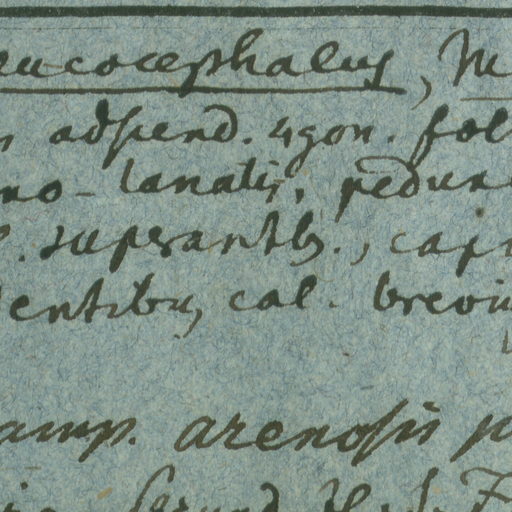 eucocephalus, M
adscend. 4gon. fol
no-lanatis, pedun
. superantib., capi
entibus, cal. brevi
amp. arenosis p